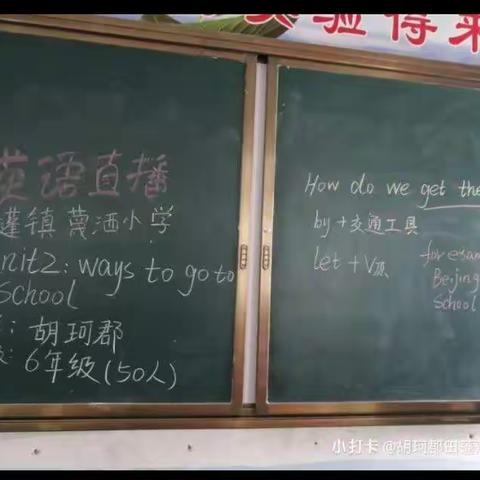 验得
英语直播
镇 蒗洒小学
nit2: ways to go to
School
: 胡珂郡
: 6年级(50人)
How do we get the
by +交通工具
let + V原
for exam
Beijing
School
小打卡 @胡珂郡